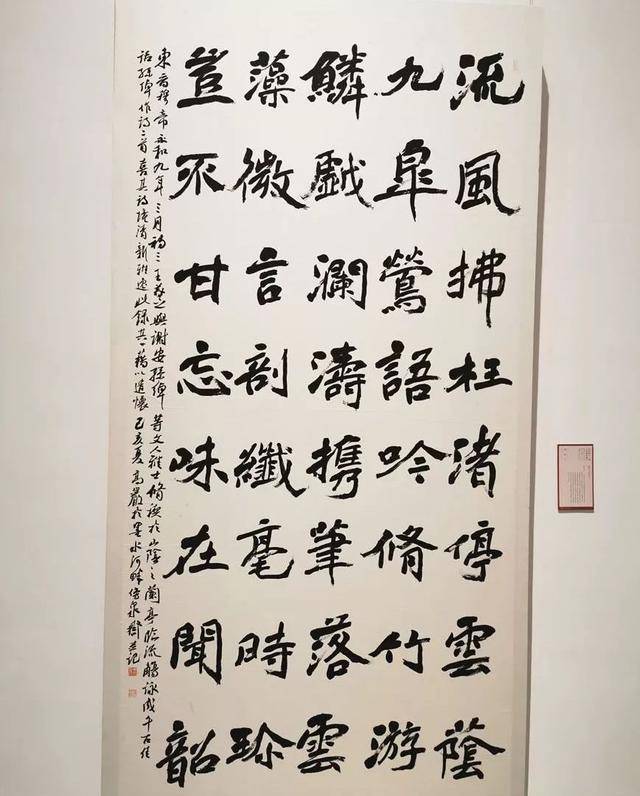 流風拂枉渚停雲蔭
九皐鶯語吟脩竹游
鱗戲瀾濤攜筆落雲
藻微言剖纖毫時珍
豈不甘忘味在聞韶
東晉穆帝永和九年三月初三王羲之與謝安孫綽等文人雅士脩禊於山陰之蘭亭臨流觴詠成千古佳
話孫綽作詩二首喜其詩境清新雅逸此錄其一藉以遣懷己亥夏高嚴於墨水河畔傍泉並記